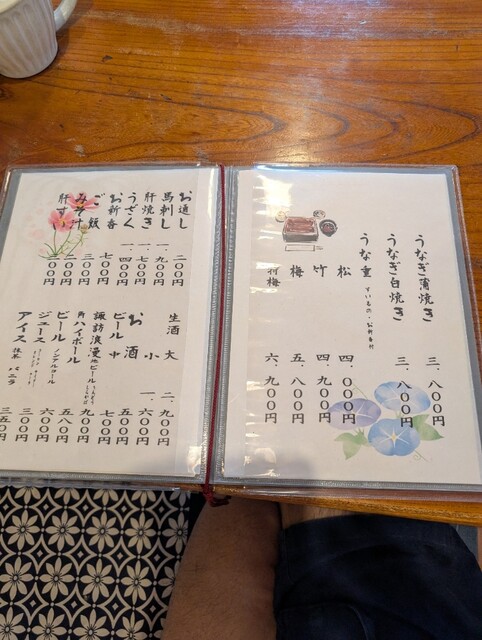 うなぎ蒲焼き 三、八〇〇円
うなぎ白焼き 三、八〇〇円
うな重 すいもの・お新香付
松 四、〇〇〇円
竹 四、九〇〇円
梅 五、八〇〇円
特梅 六、九〇〇円
お通し 二〇〇円
馬刺し 一、九〇〇円
肝焼き
うざく 一、四〇〇円
お新香 七〇〇円
ご飯 三〇〇円
みそ汁 二〇〇円
肝すい 一〇〇円
生酒 大 二、九〇〇円
小 一、六〇〇円
お酒 五五〇円
ビール 中 七〇〇円
諏訪浪漫地ビール 九〇〇円
角ハイボール
ビール ノンアルコール
ジュース
アイス 抹茶 バニラ 三五〇円